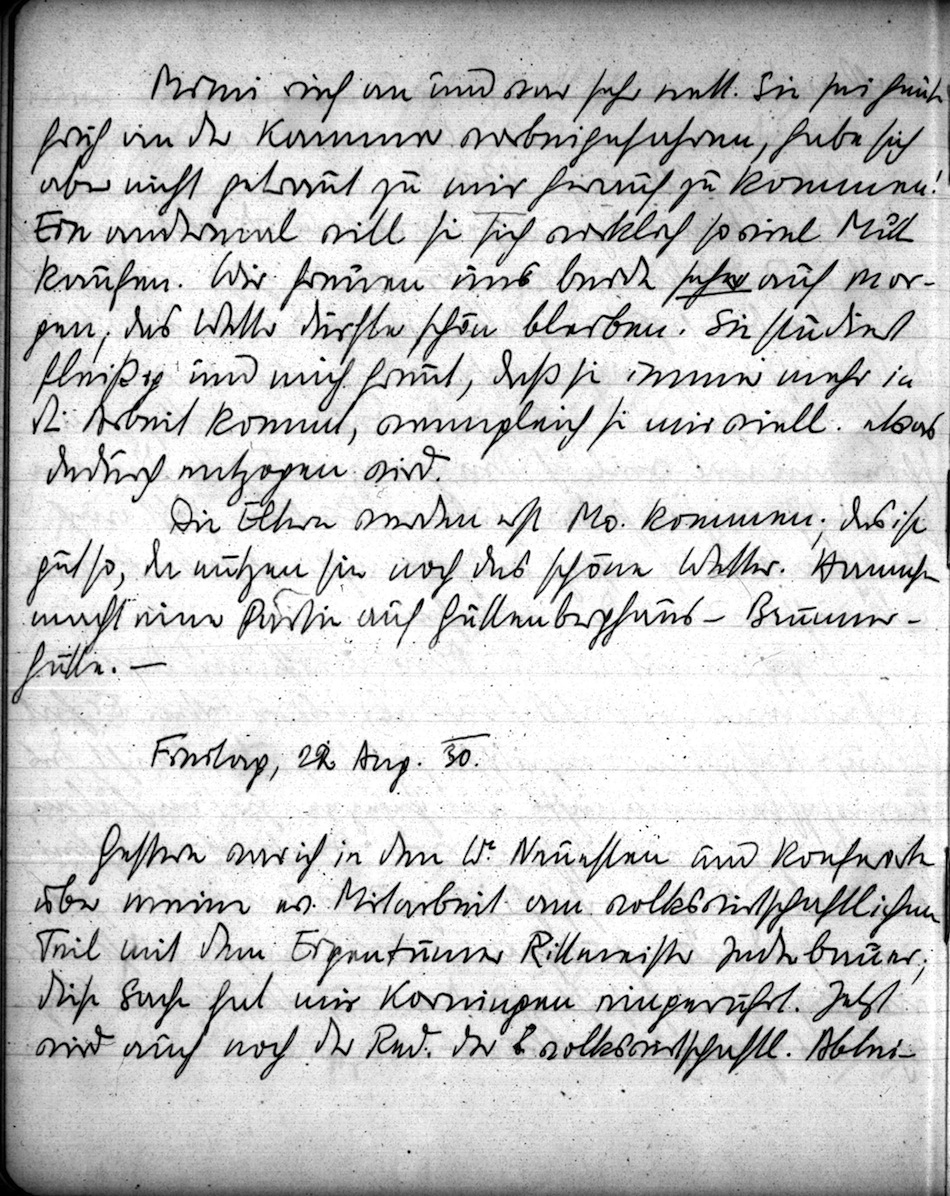 Mimi rief an und war sehr nett. Sie sei heute
früh an der Kammer vorbeigefahren, habe sich
aber nicht getraut zu mir herauf zu kommen!
Ein andermal will sie sich wirklich soviel Mut
kaufen. Wir freuen uns beide sehr auf mor-
gen, das Wetter dürfte schön bleiben. Sie studiert
fleißig und mich freut, daß sie immer mehr in
die Arbeit kommt, wenngleich sie mir viell. etwas
dadurch entzogen wird.
Die Eltern werden erst Mo. kommen; das ist
gut so, da nützen sie noch das schöne Wetter.
macht eine Partie auf Guttenberghaus - Brünner-
hütte. —
Freitag, 22 Aug. 30.
Gestern war ich in den W. Neuesten und konferierte
über meine ev. Mitarbeit am volkswirtschaftlichen
Teil mit dem Eigentümer Rittmeister
diese Sache hat mir eingerührt. Jetzt
wird auch noch der Red. der volkswirtschaftl. Abtei-